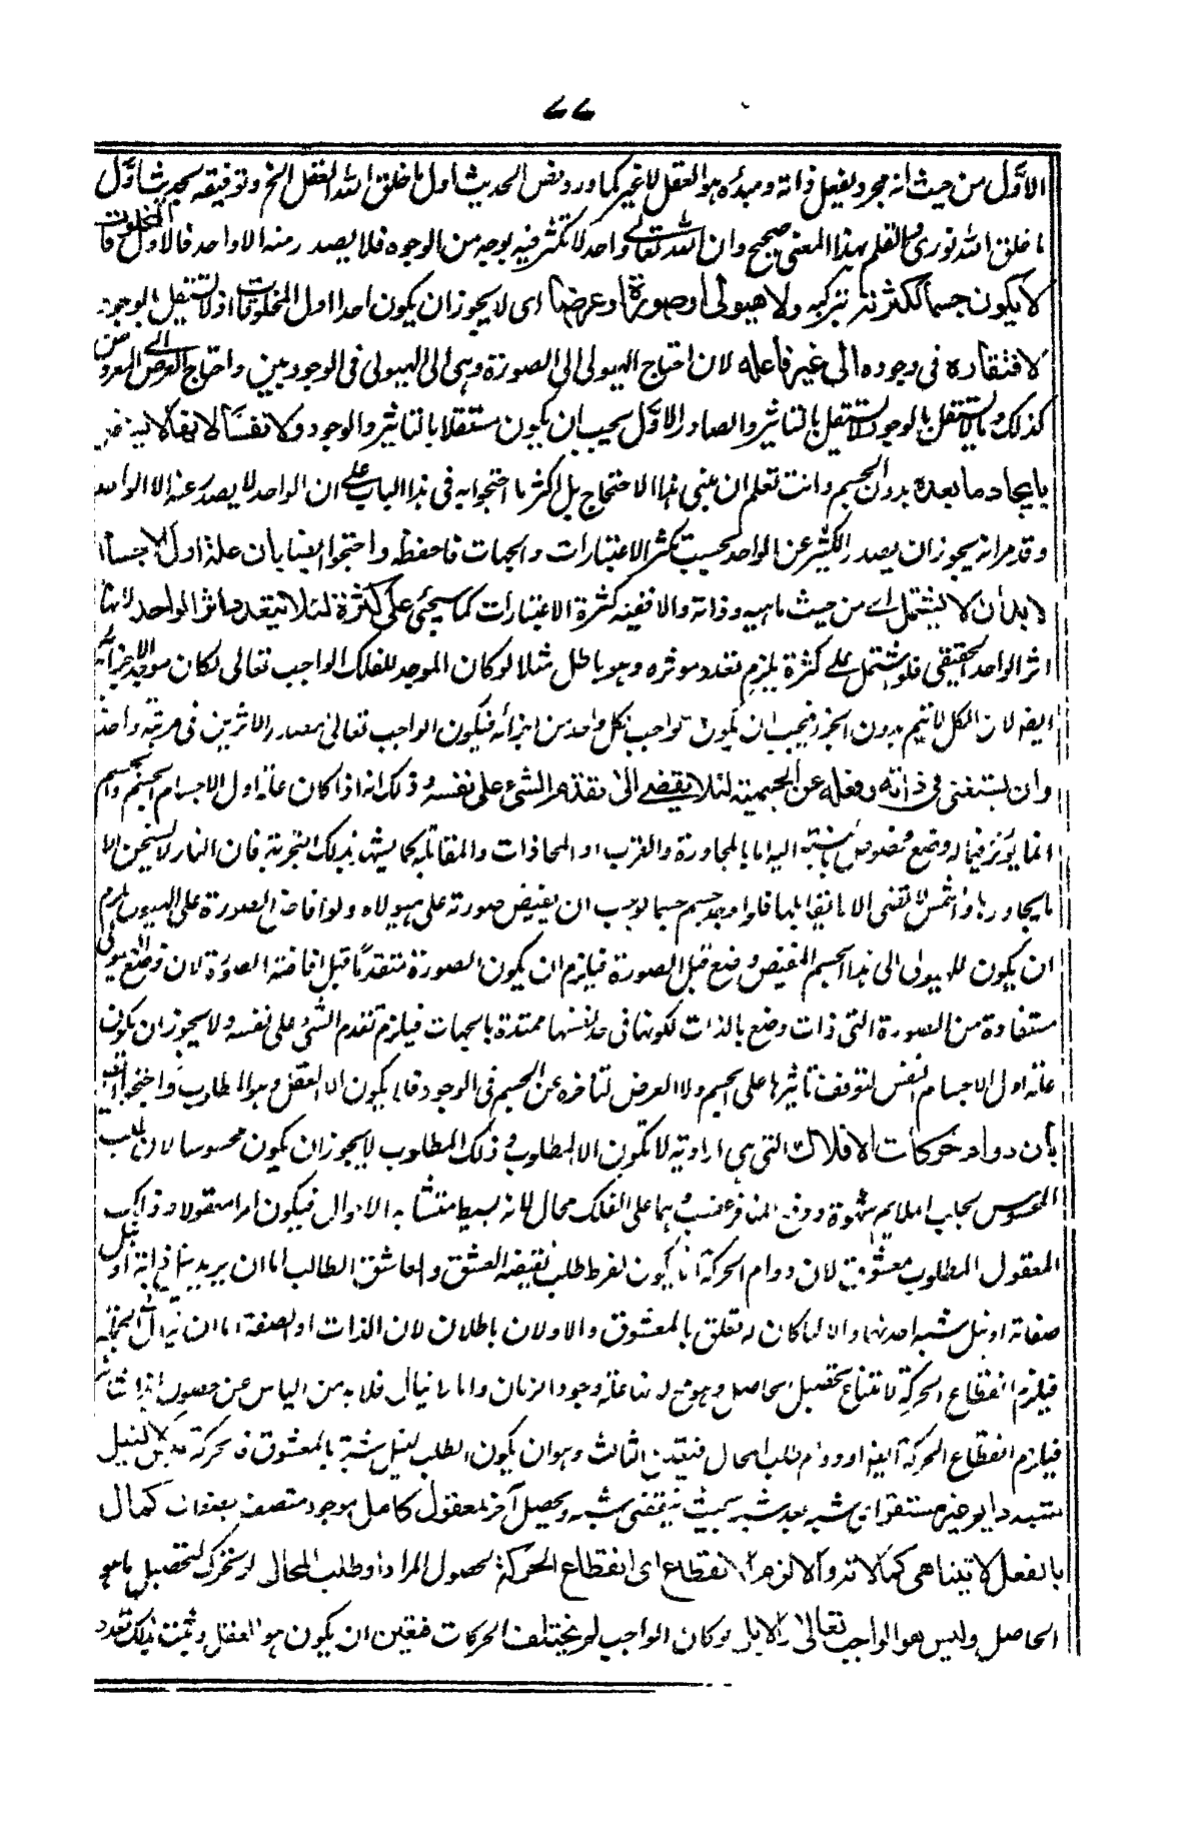 ٧٧
الاوّل من حيث انه مجرد يفعل ذاته ومبدئه هو العقل لا غير كما ورد نص الحديث اول ما خلق الله العقل الخ وتوفيقه بحديث اوّل
ما خلق الله نوري والقلم بهذا المعنى صحيح وان الله تعالى واحد لا تكثر فيه بوجه من الوجوه فلا يصدر منه الا واحد فالاول المخلوقات
لا يكون جسما لكثرته بتركبه ولا هيولى او صورة او عرضا اى لا يجوز ان يكون احدا اول المخلوقات اذ لا تستقل بالوجود
لافتقاره فى وجوده الى غير فاعله لان احتياج الهيولى الى الصورة وهى الى الهيولى فى الوجود بين واحتياج العرض الى المعروض
كذلك وما لا يستقل بالوجود لا يستقل بالتاثير والصادر الاوّل يجب ان يكون مستقلا بالتاثير والوجود ولا نفسا لانها لا تستقل
بايجاد ما بعده بدون الجسم وانت تعلم ان مبنى هذا الاحتجاج بل اكثر ما احتجوا به فى هذا الباب على ان الواحد لا يصدر عنه الا الواحد
وقد مر انه يجوز ان يصدر الكثير عن الواحد بحسب تكثر الاعتبارات والجهات فاحفظه واحتجوا ايضا بان علة اول الاجسام
لا بد ان لا يشتمل اے من حيث ماهيه وذاته والا ففيه كثرة الاعتبارات كما سيجئ على كثرة لئلا يتعدد ما اثر الواحد لانها
اثر الواحد الحقيقى فلو اشتمل على كثرة يلزم تعدد موثره وهو باطل مثلا لو كان الموجد للفلك الواجب تعالى لكان موجدا لاجزائه
ايضا لان الكل لا يتم بدون الجزء فيجب ان يكون الواجب لكل واحد من اجزائه فيكون الواجب تعالى مصدر الاثرين فى مرتبة واحدة
وان يستغنى فى ذاته وفعله عن الجسمية لئلا يفضے الى تقدم الشئ على نفسه وذلك انه اذا كان علة اول الاجسام الجسم والجسم
انما يوثر فيما له وضع مخصوص بنسبة اليه اما بالمجاورة والقرب او المحاذات والمقابلة كما يشهد بذلك التجربة فان النار لا تسخن الا
ما يجاورها والشمس لا تضئ الا ما يقابلها فلو اوجد جسم جسما لوجب ان يفيض صورته على هيولاه ولو افاض الصورة على الهيولى لزم
ان يكون للهيولى الى هذا الجسم المفيض وضع قبل الصورة فيلزم ان يكون الصورة متقدما قبل افاضة الصورة لان وضع الهيولى
مستفادة من الصورة التى ذات وضع بالذات لكونها فى حد نفسها ممتدة بالجهات فيلزم تقدم الشئ على نفسه ولا يجوز ان يكون
علة اول الاجسام النفس لتوقف تاثيرها على الجسم ولا العرض لتاخره عن الجسم فى الوجود فلا يكون الا العقل وهو المطلوب واحتجوا ايضا
بان دوام حركات الافلاك التى هى ارادية لا تكون الا لمطلوب وذلك المطلوب لا يجوز ان يكون محسوسا لان طلب
المحسوس بجلب الملايم شهوة ودفع المنافر غضب وهما على الفلك محال لانه بسيط متشابه الاحوال فيكون امرا معقولا وذلك
المعقول المطلوب معشوق لان دوام الحركة انما يكون لفرط طلب يقتضيه العشق والعاشق الطالب اما ان يريد نيل ذاته او نيل
صفاته او نيل شبه احدهما والا لما كان له تعلق بالمعشوق والاولان باطلان لان الذات او الصفة اما ان ينال الجملة
فيلزم انقطاع الحركة لامتناع تحصيل الحاصل وهو علة وجود الزمان واما لا ينال فلا بد من الياس عن حصول
فيلزم انقطاع الحركة ايضا او دوام طلب المحال فيتعين الثالث وهو ان يكون الطلب لنيل شبه بالمعشوق لنيل
شبه دايم غير مستقر اى شبه بعد شبه بحيث ينقضى شبه ويحصل آخر لمعقول كامل موجود متصف بصفات كمال
بالفعل لا تتناهى كمالاته والا لزم الانقطاع اى انقطاع الحركة لحصول المراد او طلب المحال لو تحرك لتحصيل ما هو
الحاصل وليس هو الواجب تعالى لو كان الواجب لم تختلف الحركات فتعين ان يكون هو العقل وثبت بذلك تعدد